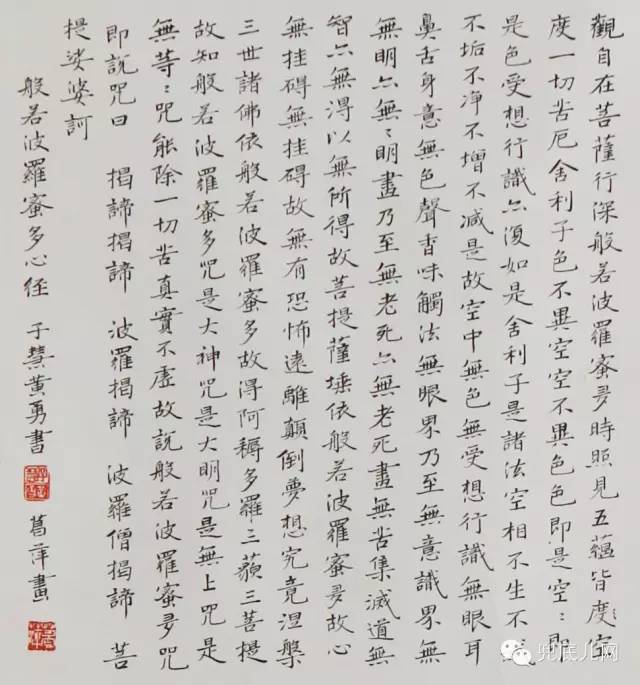 觀自在菩薩行深般若波羅蜜多時照見五蘊皆度空
度一切苦厄舍利子色不異空空不異色色即是空〻即
是色受想行識亦復如是舍利子是諸法空相不生不
不垢不净不增不減是故空中無色無受想行識無眼耳
鼻舌身意無色聲香味觸法無眼界乃至無意識界無
無明亦無〻明盡乃至無老死亦無老死盡無苦集滅道無
智亦無得以無所得故菩提薩埵依般若波羅蜜多故心
無挂碍無挂碍故無有恐怖遠離顛倒夢想究竟涅槃
三世諸佛依般若波羅蜜多故得阿耨多羅三藐三菩提
故知般若波羅蜜多咒是大神咒是大明咒是無上咒是
無等〻咒能除一切苦真實不虛故說般若波羅蜜多咒
即說咒曰 揭諦揭諦 波羅揭諦 波羅僧揭諦 菩
提娑婆訶
般若波羅蜜多心经 子慧黃勇書 葛萍畫
兜底儿网